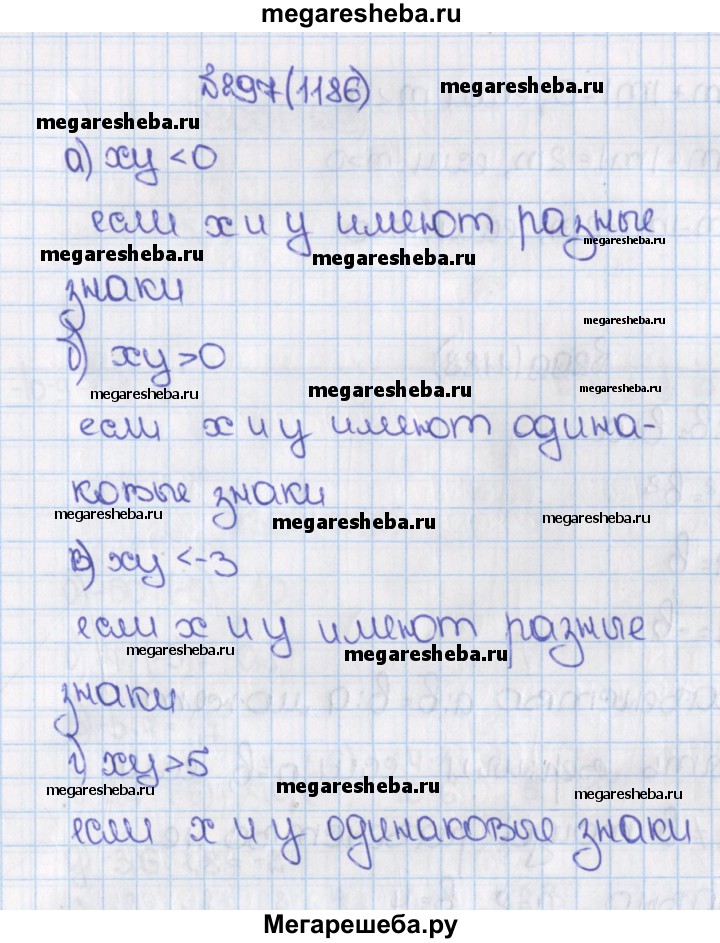 megaresheba.ru
№897(1186)
megaresheba.ru
megaresheba.ru
а) xy <0
если х и у имеют разные
megaresheba.ru
megaresheba.ru
megaresheba.ru
знаки
megaresheba.ru
б) xy >0
megaresheba.ru
megaresheba.ru
megaresheba.ru
если х и у имеют одина-
ковые знаки
megaresheba.ru
megaresheba.ru
megaresheba.ru
в) xy <-3
если х и у имеют разные
megaresheba.ru
megaresheba.ru
знаки
г) xy >5
megaresheba.ru
megaresheba.ru
megaresheba.ru
если х и у одинаковые знаки
Мегарешеба.ру